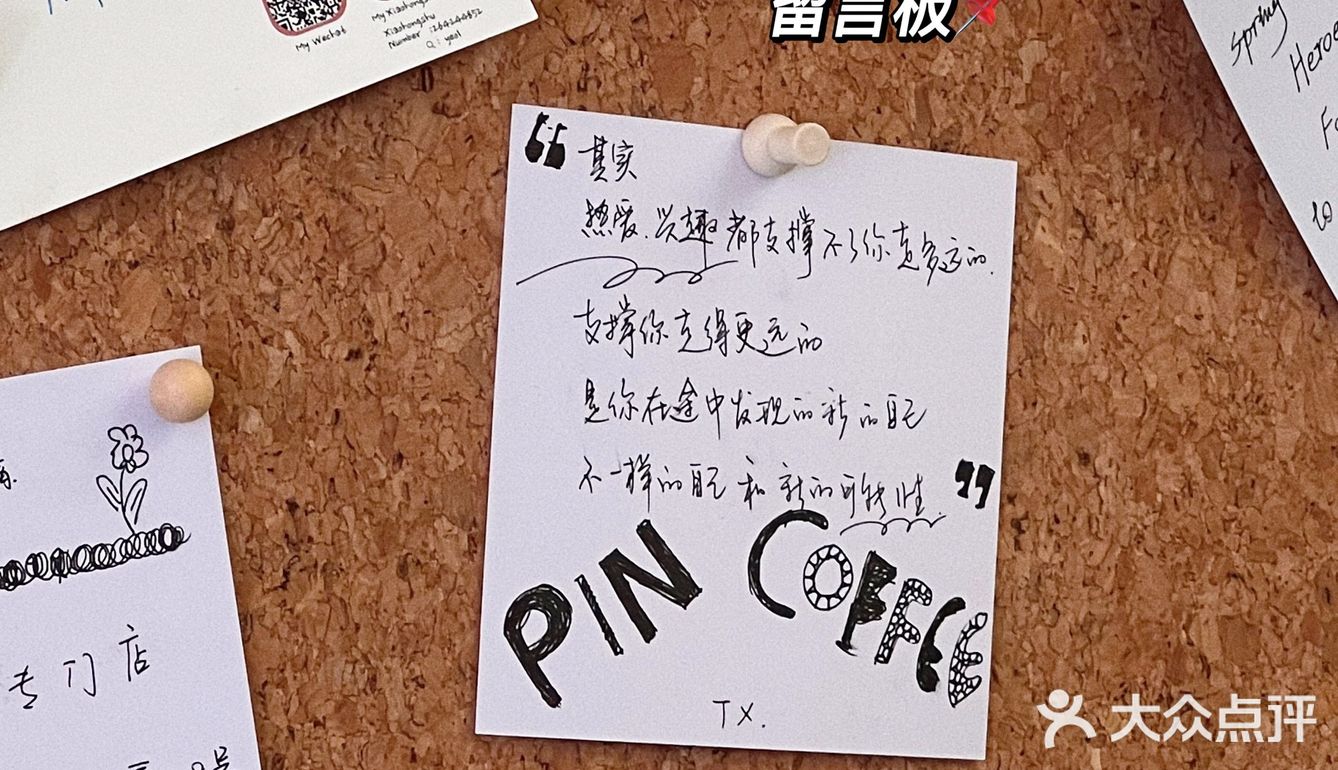 留言板
My Wechat
My Xiaohongshu
Xiaohongshu
Number :
Spring
Heroe
“其实
热爱.兴趣都支撑不了你走多远的.
支撑你走得更远的
是你在途中发现的新的自己
不一样的自己和新的可能性.”
PIN COFFEE
TX.
专门店
大众点评